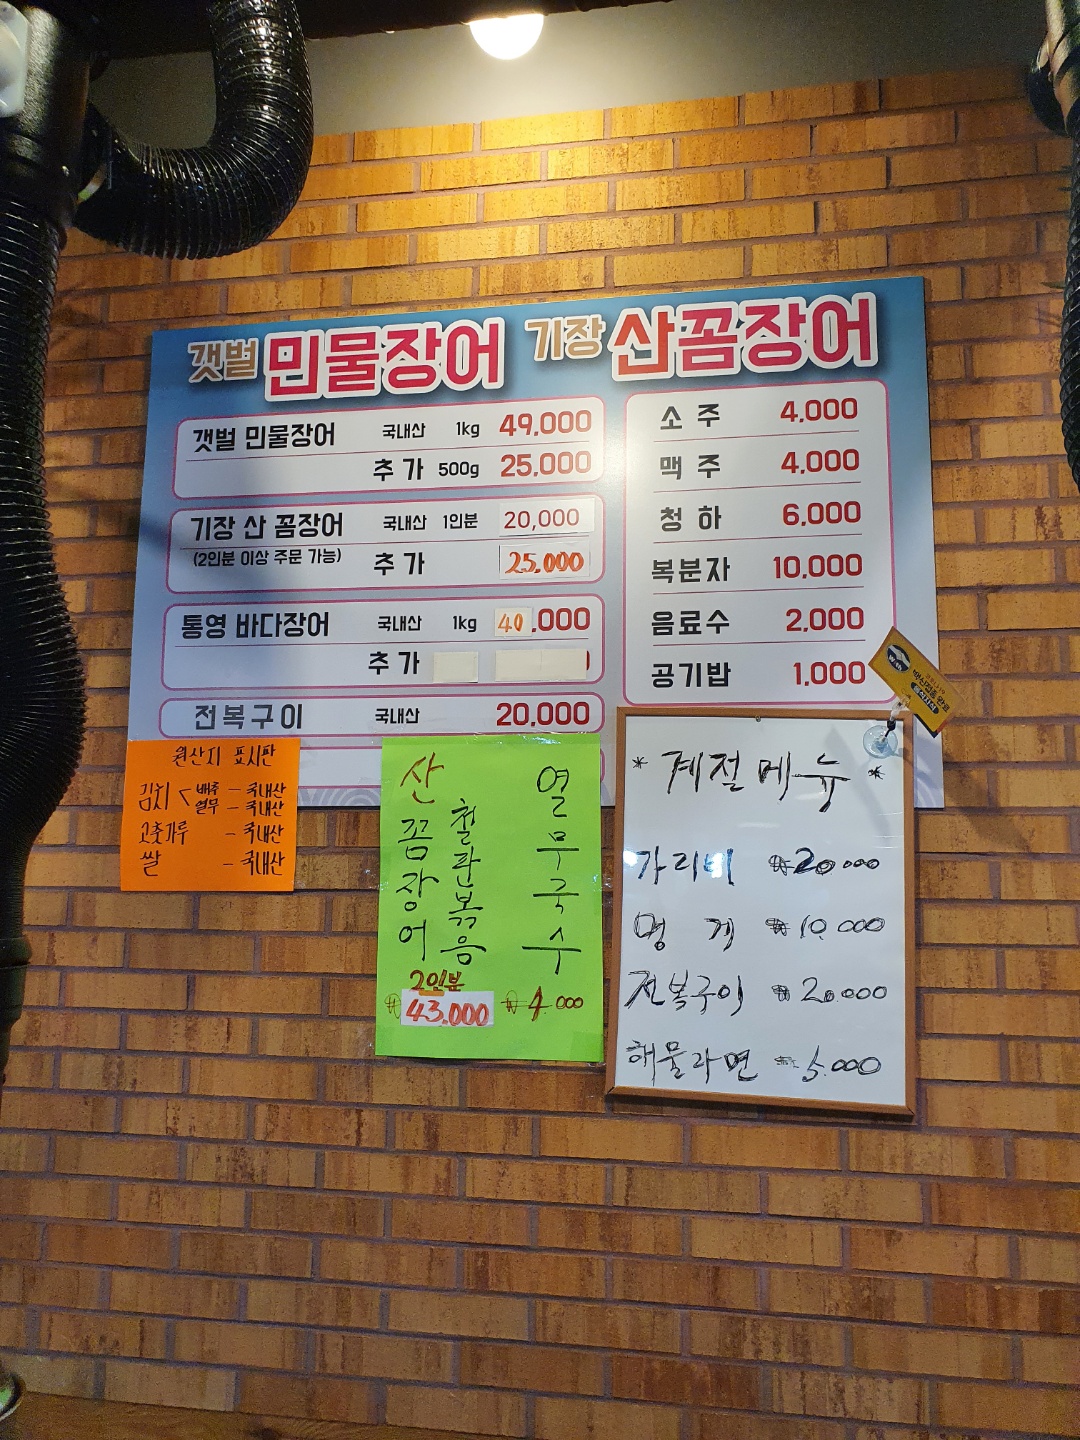 갯벌 민물장어 기장 산꼼장어
갯벌 민물장어 국내산 1kg 49,000
추가 500g 25,000
기장 산 꼼장어 국내산 1인분 20,000
(2인분 이상 주문 가능) 추가 25,000
통영 바다장어 국내산 1kg 40,000
추가
전복구이 국내산 20,000
소주 4,000
맥주 4,000
청하 6,000
복분자 10,000
음료수 2,000
공기밥 1,000
원산지 표시판
김치 < 배추 - 국내산
열무 - 국내산
고춧가루 - 국내산
쌀 - 국내산
산꼼장어
철판볶음
2인분
₩43.000
열무국수
₩4.000
* 계절메뉴 *
가리비 ₩20.000
멍게 ₩10.000
전복구이 ₩20.000
해물라면 ₩5.000